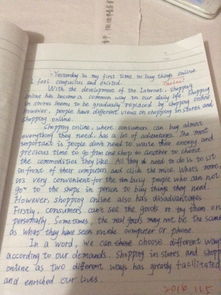 Yesterday is my first time to buy things online
I feel and excited.
With the development of the Internet, shopping
online has become a common way in our daily life. Shopping
in stores seems to be gradually replaced by shopping online.
However, people have different views on shopping in stores and
shopping online.
Shopping online, where consumers can buy almost
everything they need, has a lot of advantages. The most
important is people don't need to waste their energy and
precious time to go from one shop to another to choose
the commodities they like. All they need to do is to sit
in front of their computers and click the mouse. What's more,
it's very convenient for the busy people who can not
go to the shops in person to buy things they need.
However, shopping online also has disadvantages.
Firstly, consumers can't see the goods or try them on
personally. Sometimes, the real goods may not be the same
as what they have seen on computer or phone.
In a word, we can choose different ways
according to our demands. Shopping in stores and shopping
online as two different ways has greatly facilitated
and enriched our lives.
2016.11.5